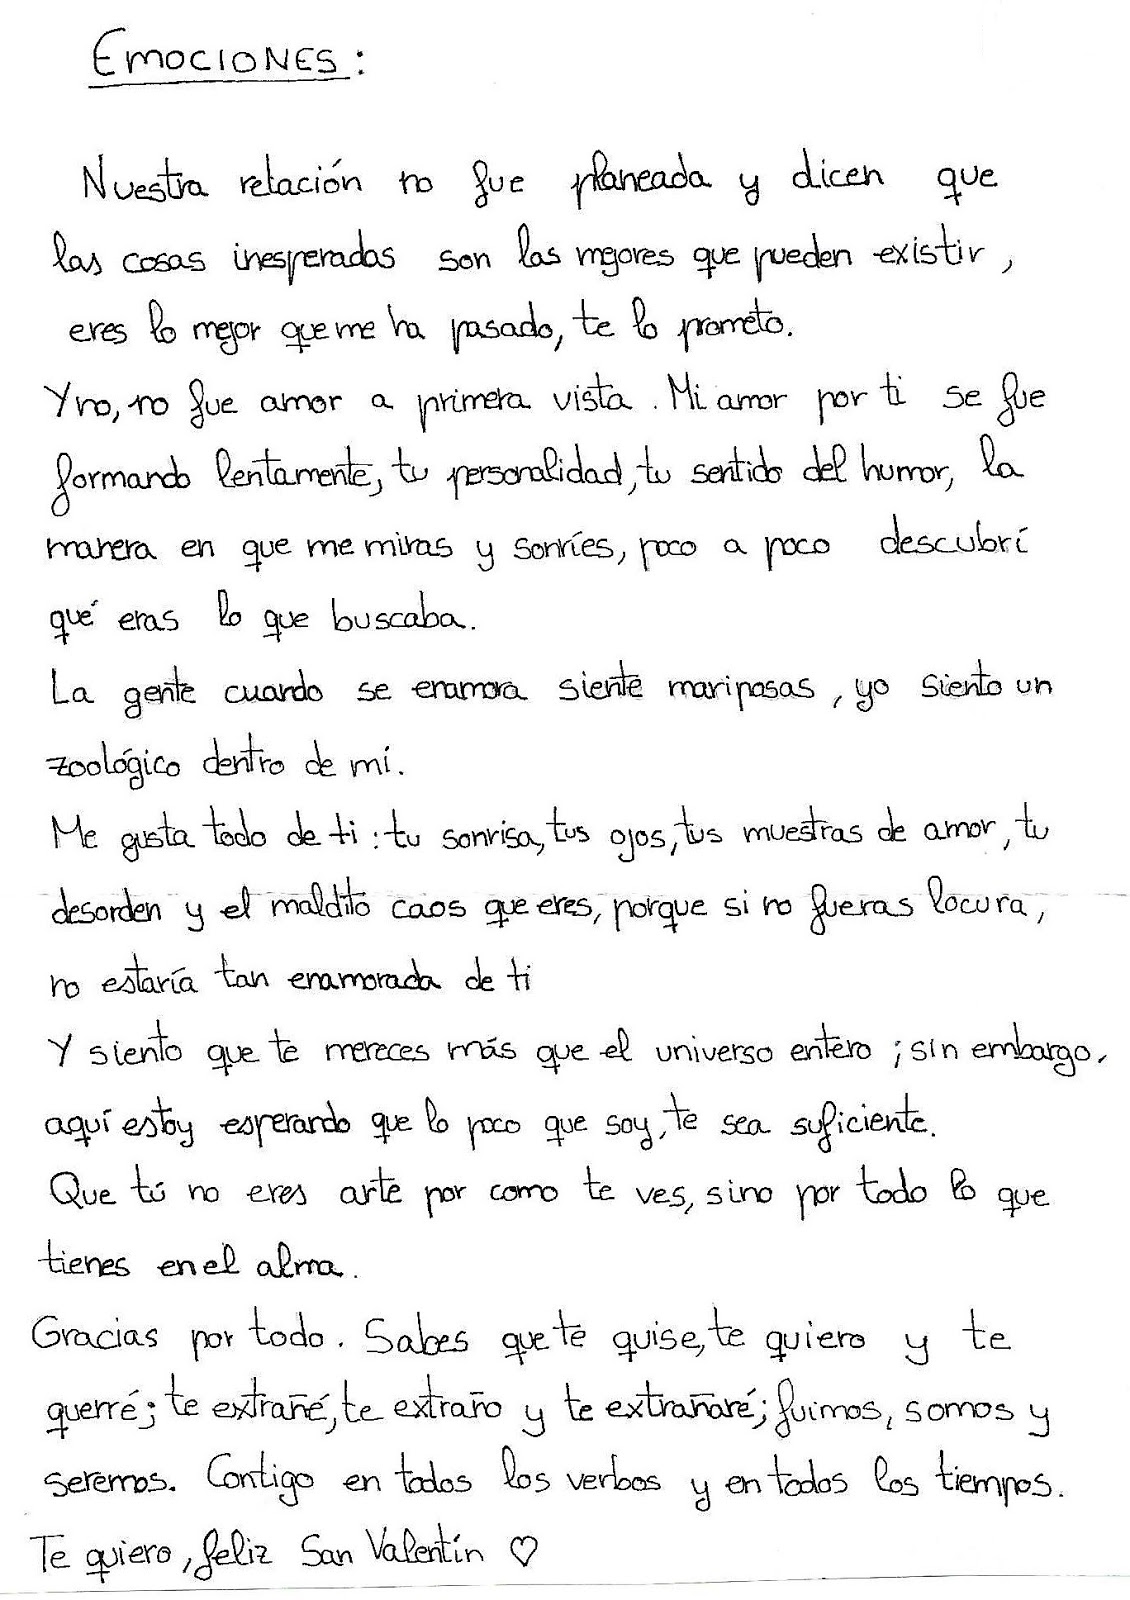 EMOCIONES:
Nuestra relación no fue planeada y dicen que
las cosas inesperadas son las mejores que pueden existir,
eres lo mejor que me ha pasado, te lo prometo.
Y no, no fue amor a primera vista. Mi amor por ti se fue
formando lentamente, tu personalidad, tu sentido del humor, la
manera en que me miras y sonríes, poco a poco descubrí
qué eras lo que buscaba.
La gente cuando se enamora siente mariposas, yo siento un
zoológico dentro de mí.
Me gusta todo de ti: tu sonrisa, tus ojos, tus muestras de amor, tu
desorden y el maldito caos que eres, porque si no fueras locura,
no estaría tan enamorada de ti
Y siento que te mereces más que el universo entero; sin embargo,
aquí estoy esperando que lo poco que soy, te sea suficiente.
Que tú no eres arte por como te ves, sino por todo lo que
tienes en el alma.
Gracias por todo. Sabes que te quise, te quiero y te
querré; te extrañé, te extraño y te extrañaré; fuimos, somos y
seremos. Contigo en todos los verbos y en todos los tiempos.
Te quiero, feliz San Valentín ♡